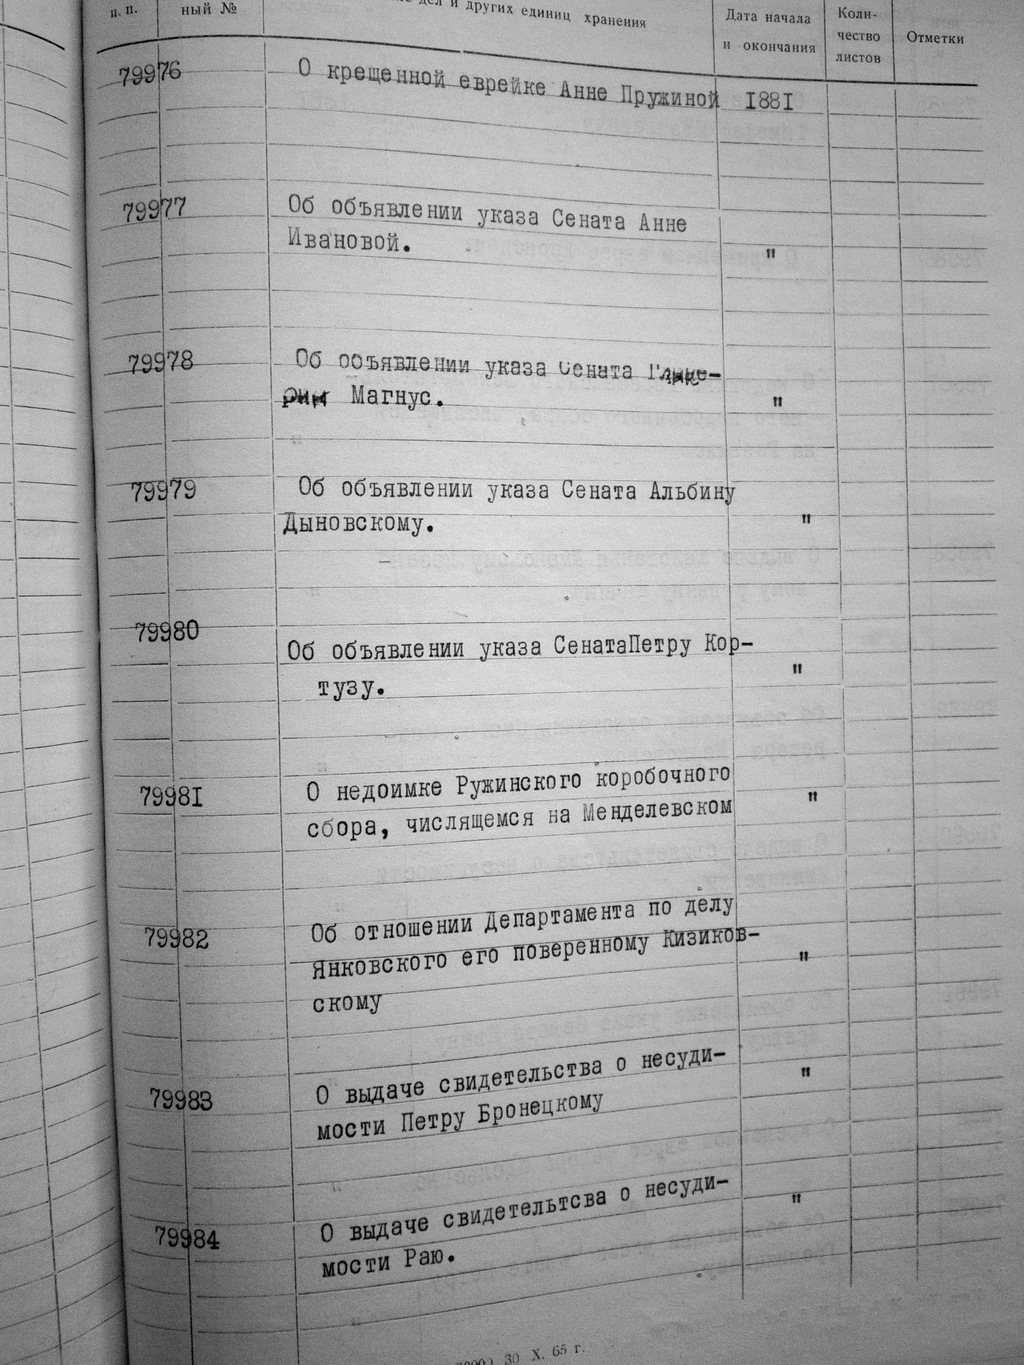 п. п.
ный №
дел и других единиц хранения
Дата начала
и окончания
Коли-
чество
листов
Отметки
79976 О крещенной еврейке Анне Пружиной 1881
79977 Об объявлении указа Сената Анне
Ивановой. "
79978 Об объявлении указа Сената Глике-
рии Магнус. "
79979 Об объявлении указа Сената Альбину
Дыновскому. "
79980 Об объявлении указа СенатаПетру Кор-
тузу. "
79981 О недоимке Ружинского коробочного
сбора, числящемся на Менделевском "
79982 Об отношении Департамента по делу
Янковского его поверенному Кизиков-
скому "
79983 О выдаче свидетельства о несуди-
мости Петру Бронецкому "
79984 О выдаче свидетельтсва о несуди-
мости Раю. "
30 X. 65 г.